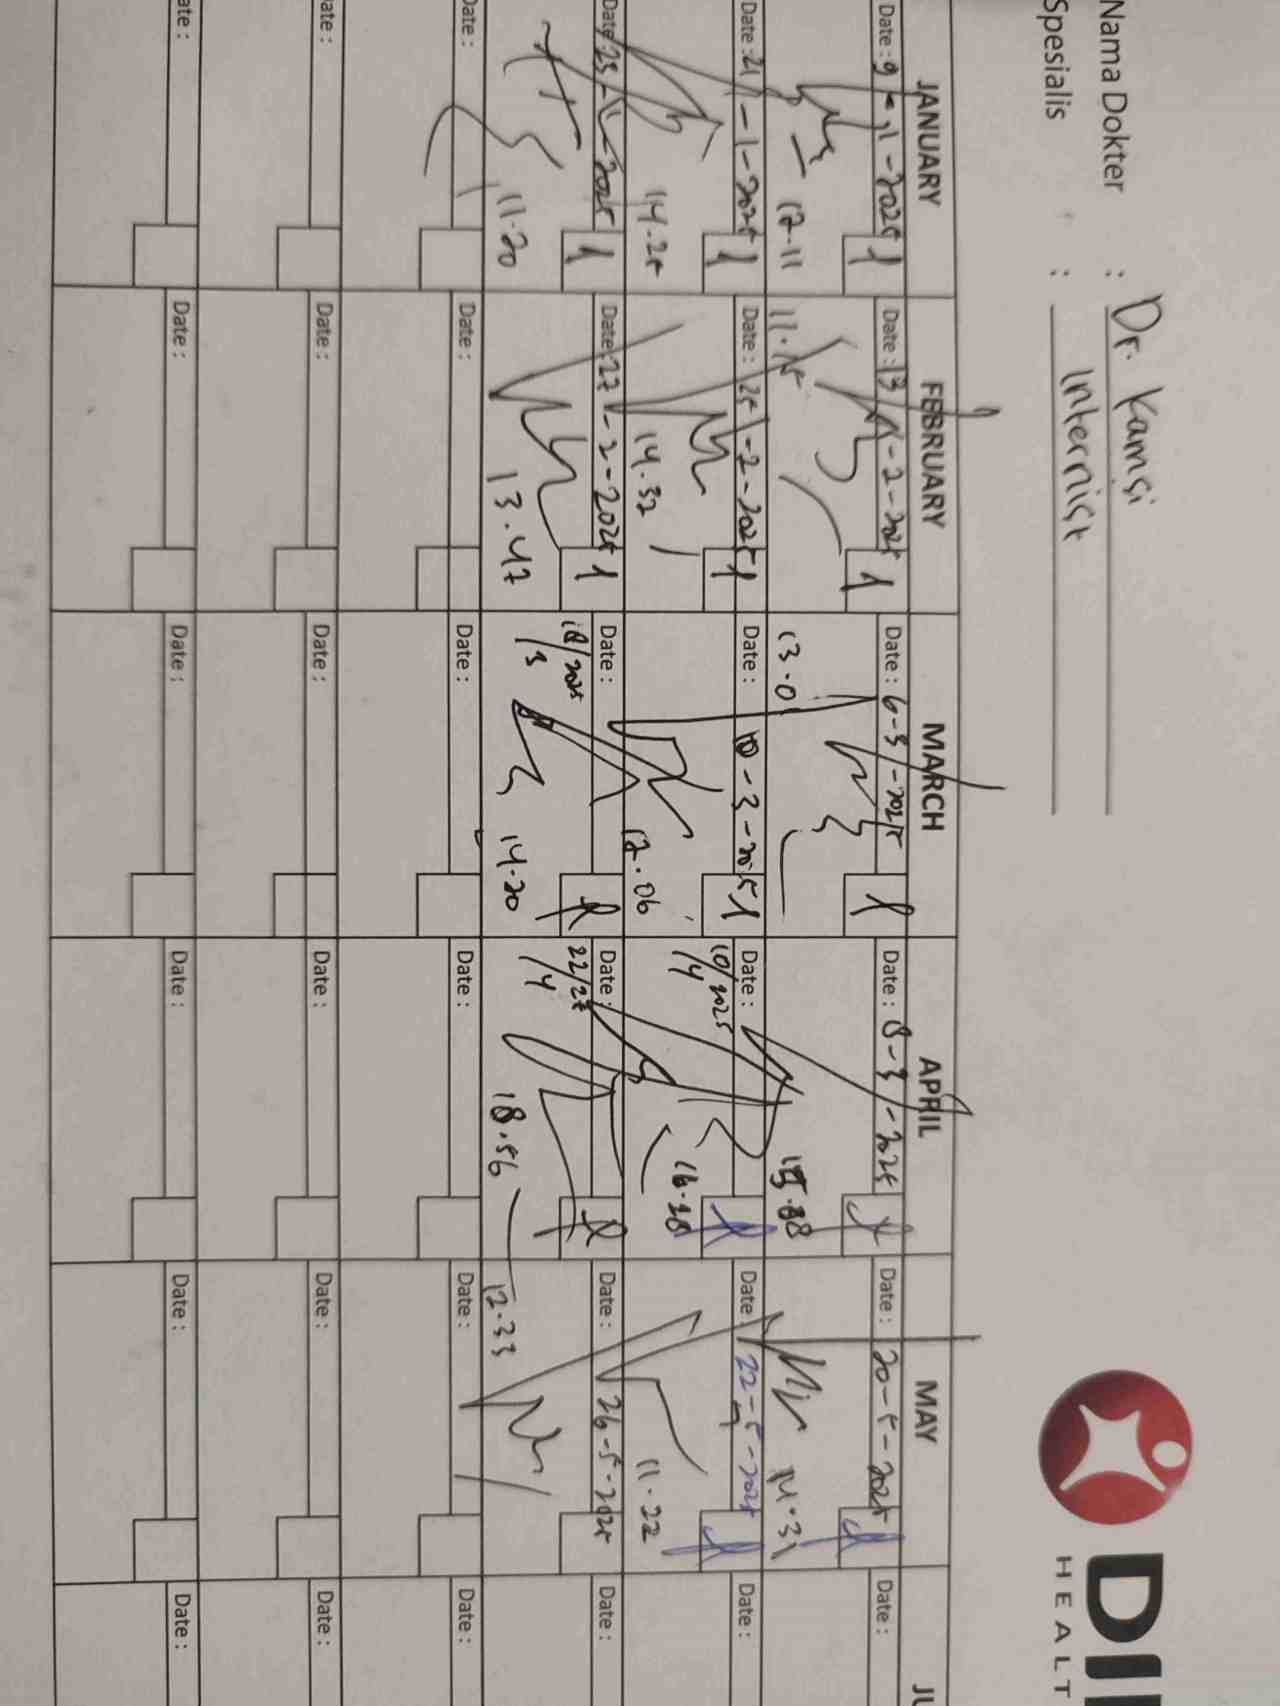 Nama Dokter : Dr. Kamsi
Spesialis : Internist
DI
HEALT
JANUARY FEBRUARY MARCH APRIL MAY JU
Date : 9-1-2025 1 Date : 13-2-2025 1 Date : 6-3-2025 Date : 8-3-2025 Date : 20-5-2025 Date :
12.11 11.15 13.01 14.31
Date : 21-1-2025 1 Date : 25-2-2025 1 Date : 10-3-2025 1 Date : 10/4 2025 Date : 22-5-2025 Date :
14.25 14.32 12.06 16.28 11.22
Date : 23-1-2025 1 Date : 27-2-2025 1 Date : 18/3 2025 Date : 22/4 Date : 26-5-2025 Date :
11.20 13.47 14.20 18.56 12.33
Date : Date : Date : Date : Date : Date :
ate : Date : Date : Date : Date : Date :
ate : Date : Date : Date : Date : Date :